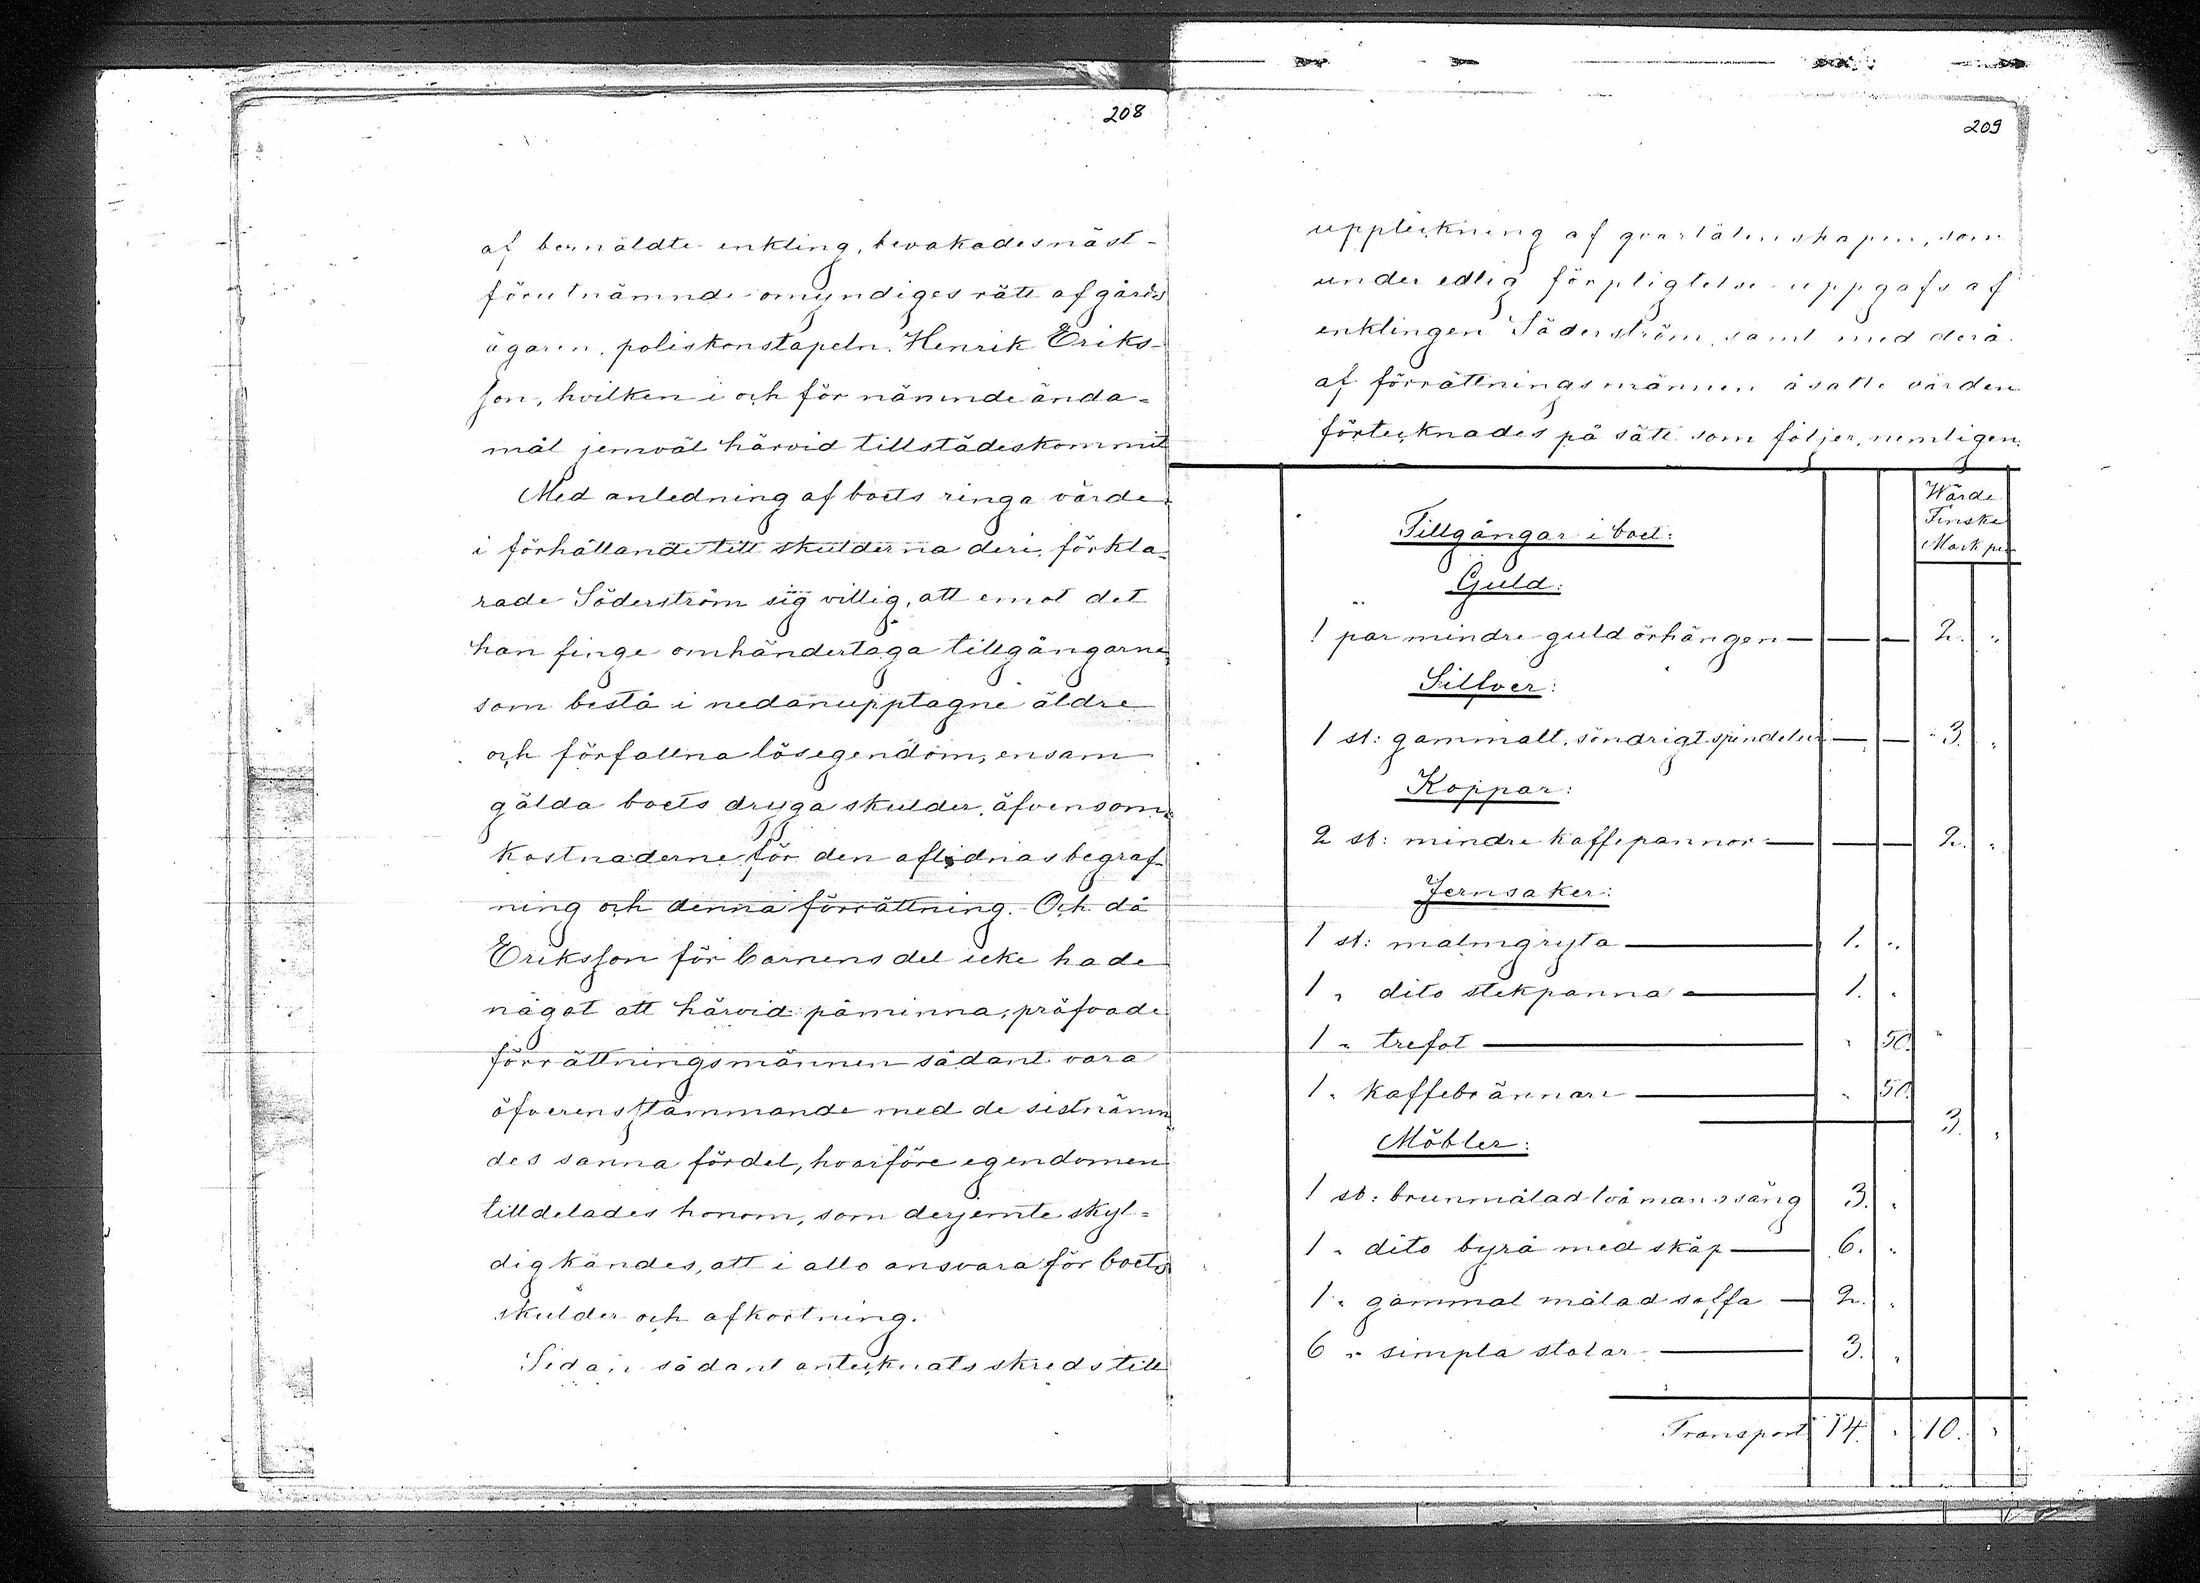 208
af bemäldte enkling, bevakades näst-
förutnämnde omyndiges rätt af gårds
ägaren, poliskonstapeln Henrik Eriks-
son, hvilken i och för nämnde ända-
mål jemväl härvid tillstädeskommit
Med anledning af boets ringa värde
i förhållande till skulderna deri, förkla-
rade Söderström sig villig, att emot det
han finge omhändertaga tillgångarne
som bestå i nedanupptagne äldre
och förfallna lösegendom, ensam
gälda boets dryga skulder, äfvensom
kostnaderne för den aflidnas begraf-
ning och denna förrättning. Och då
Eriksson för barnens del icke hade
något att härvid påminna, pröfvade
förrättningsmännen sådant vara
öfverensstämmande med de sistnämn
des sanna fördel, hvarföre egendomen
tilldelades honom, som derjemte skyl-
dig kändes, att i allo ansvara för boets
skulder och afkortning.
Sedan sådant antecknats skreds till
209
uppteckning af qvarlåtenskapen, som
under edlig förpligtelse uppgafs af
enklingen Söderström, samt med derå
af förrättningsmännen åsatte värden
förtecknades på sätt som följer, nemligen:
Wärde
Finska
Mark pi
Tillgångar i boet:
Guld:
1 par mindre guldörhängen — — — 2. "
Silfver:
1 st: gammalt, söndrigt spindelur — — 3. "
Koppar:
2 st: mindre kaffepannor — — — 2. "
Jernsaker:
1 st: malmgryta — 1. "
1 " dito stekpanna — 1. "
1 " trefot — " 50.
1 " kaffebrännare — " 50.
3. "
Möbler:
1 st: brunmålad tvåmanssäng 3. "
1 " dito byrå med skåp — 6. "
1 " gammal målad soffa — 2. "
6 " simpla stolar — 3. "
Transport 14. " 10. "